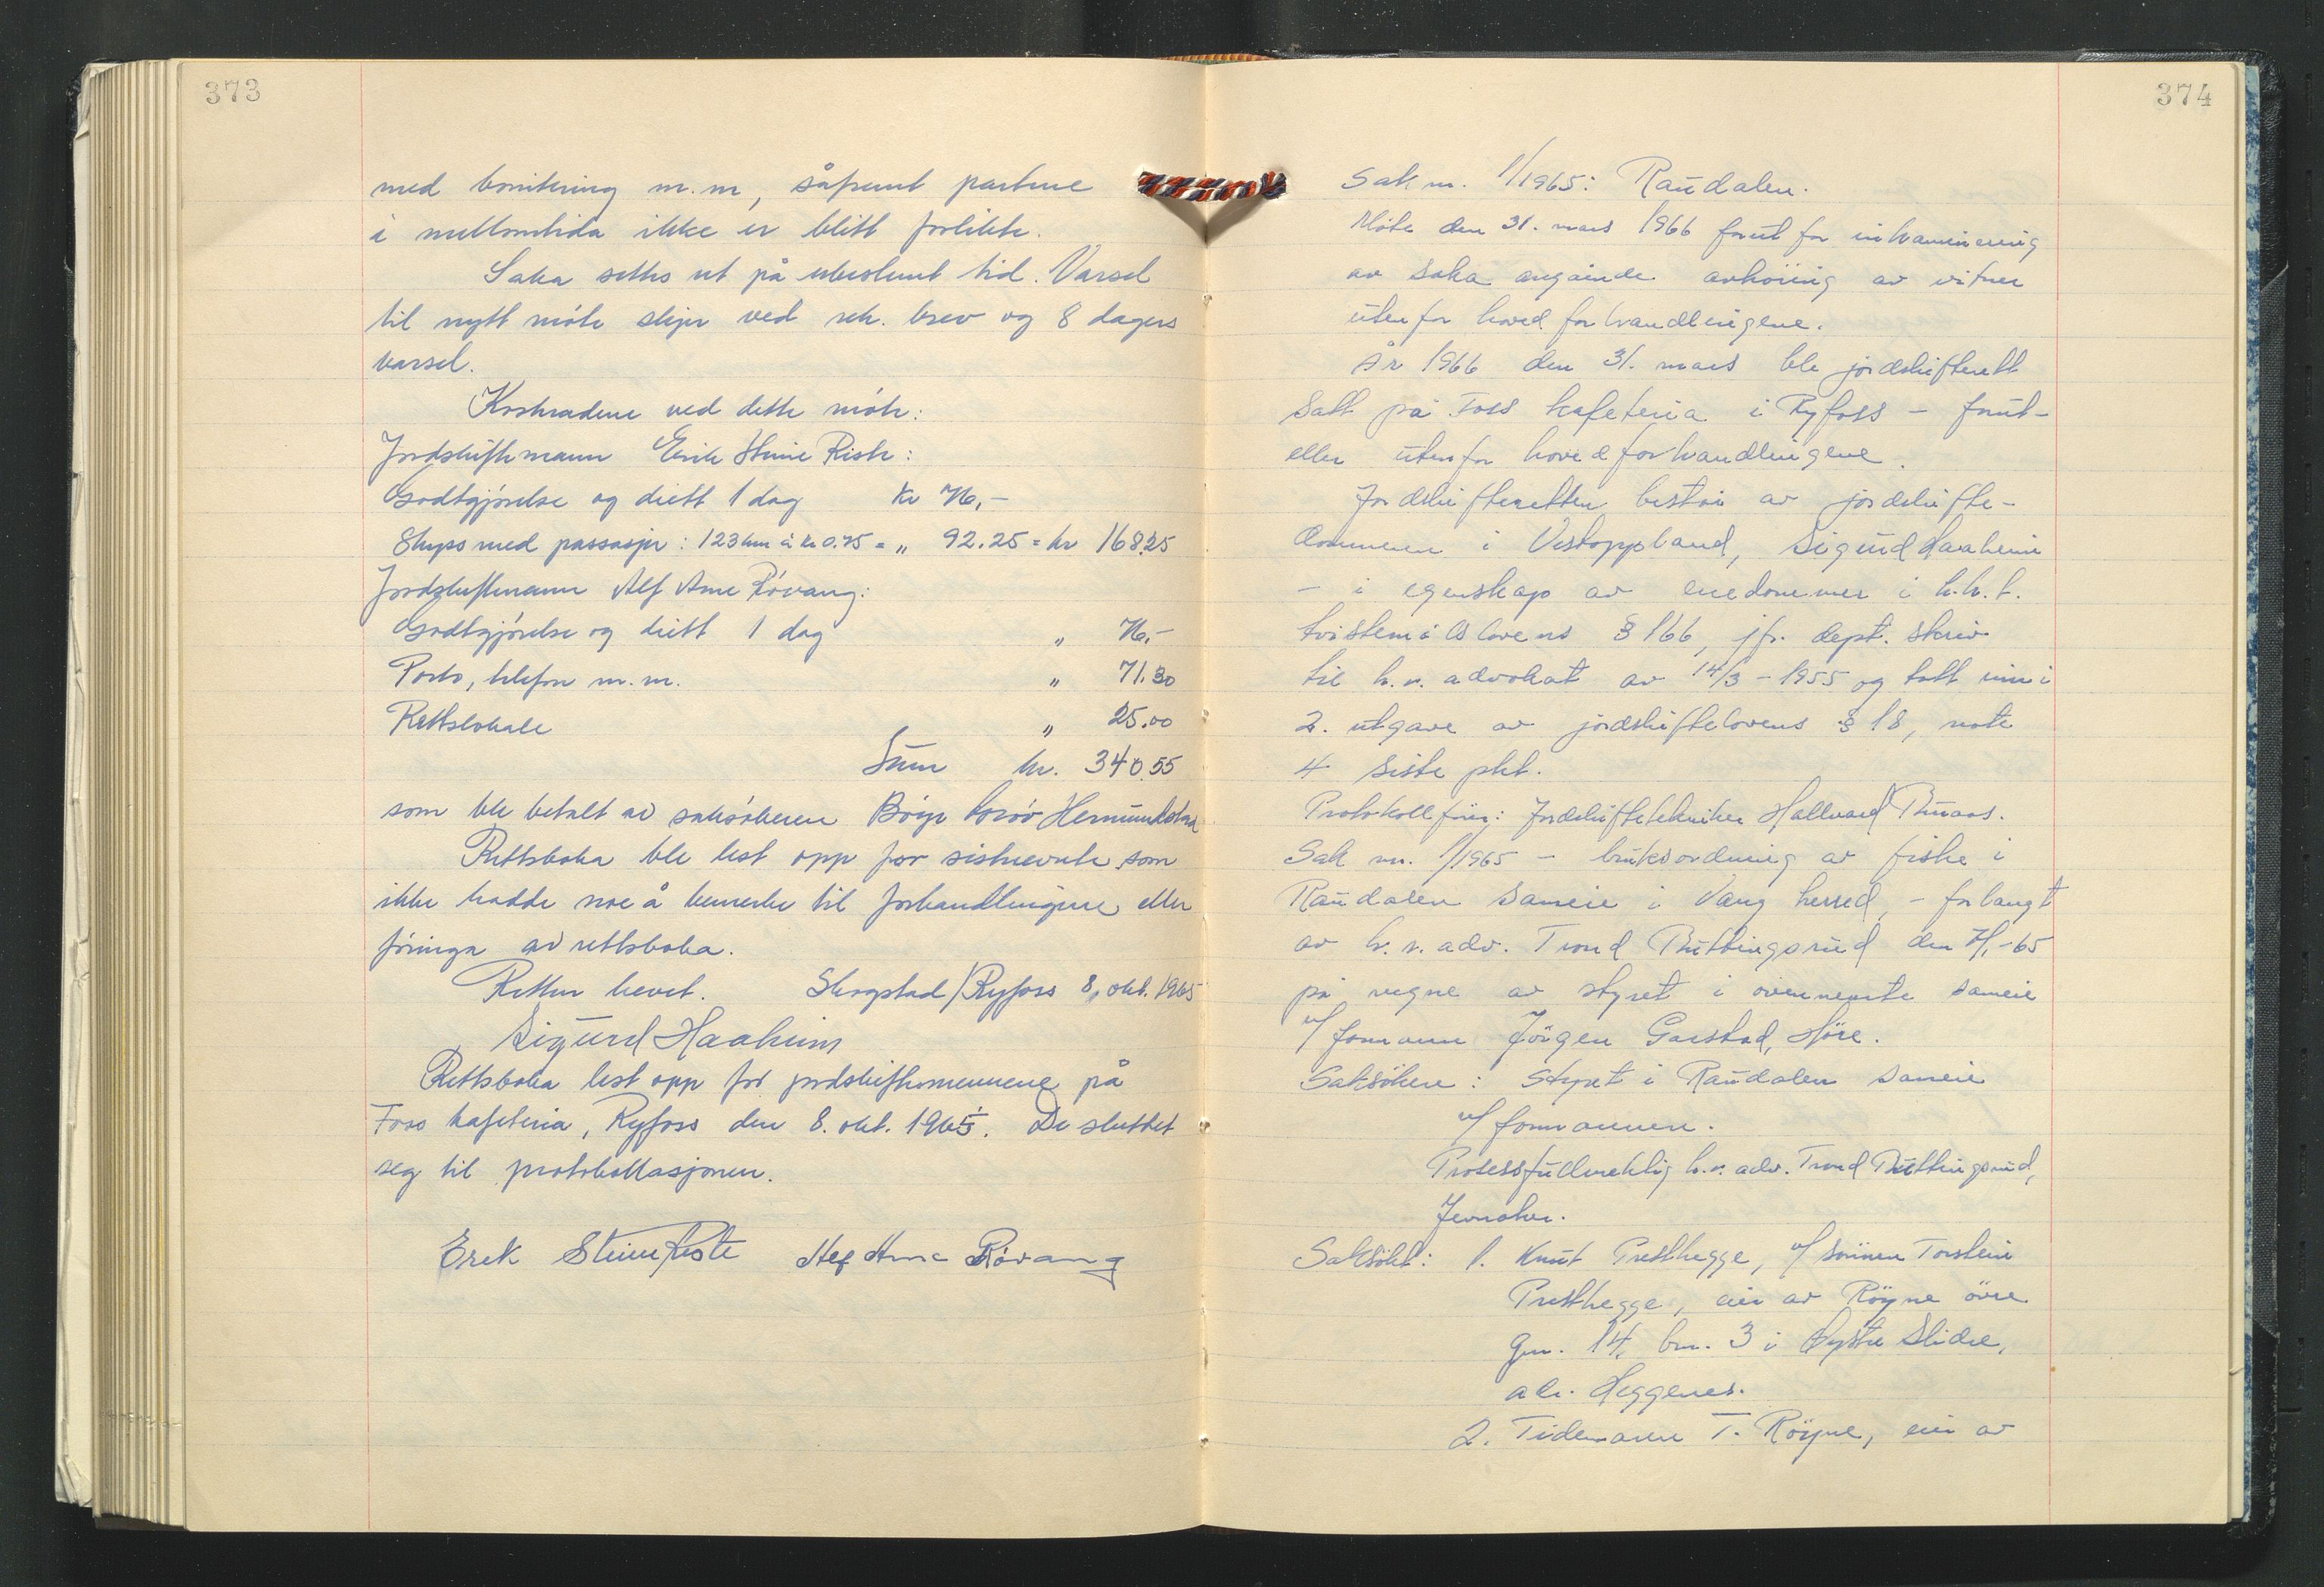 373
med bonitering m.m, såfremt partene
i mellomtida ikke er blitt forlikte.
Saka settes ut på ubestemt tid. Varsel
til nytt møte skjer ved rek. brev og 8 dagers
varsel.
Kostnadene ved dette møte:
Jordskiftemann Erik Steine Riste:
Godtgjørelse og diett 1 dag Kr 76,-
Skyss med passasjer: 123 km à kr 0.75 = " 92.25 = kr 168.25
Jordskiftemann Alf Arne Røvang:
Godtgjørelse og diett 1 dag " 76,-
Porto, telefon m.m. " 71.30
Rettslokale " 25.00
Sum kr. 340.55
som ble betalt av saksøkeren Børge Hermundstad
Rettsboka ble lest opp for sistnevnte som
ikke hadde noe å bemerke til forhandlingene eller
føringa av rettsboka.
Retten hevet. Skogstad/Ryfoss 8. okt. 1965
Sigurd Haaheim
Rettsboka lest opp for jordskiftemennene på
Foss kafeteria, Ryfoss den 8. okt. 1965. De sluttet
seg til protokollasjonen.
Erik Steine Riste Alf Arne Røvang
374
Sak nr. 1/1965: Raudalen.
Møte den 31. mars 1966 forut for inkaminering
av saka angående avhøring av vitner
utenfor hovedforhandlingene.
År 1966 den 31. mars ble jordskifterett
satt på Foss kafeteria i Ryfoss - forut-
eller utenfor hovedforhandlingene.
Jordskifteretten består av jordskifte-
dommeren i Vestoppland, Sigurd Haaheim
- i egenskap av enedommer i h.h.t.
tvistemålslovens § 166, jfr. dept. skriv
til h.r. advokat av 14/3 - 1955 og tatt inn i
2. utgave av jordskiftelovens § 18, note
4 siste pkt.
Protokollfører: Jordskiftetekniker Hallvard
Sak nr. 1/1965 - bruksordning av fiske i
Raudalen sameie i Vang herred, - forlangt
av h.r. adv. Trond den -65
på vegne av styret i ovennevnte sameie
v/ formann Jörgen Garstad, Höre.
Saksökere: Styret i Raudalen sameie
v/ formannen.
Prosessfullmektig h.r. adv. Trond
Jevnaker.
Saksökt: 1. Knut Presthegge, v/ sönnen Torstein
Presthegge, eier av Röyne övre
gnr. 14, bnr. 3 i Øystre Slidre,
adr. Heggenes.
2. Tidemann T. Röyne, eier av